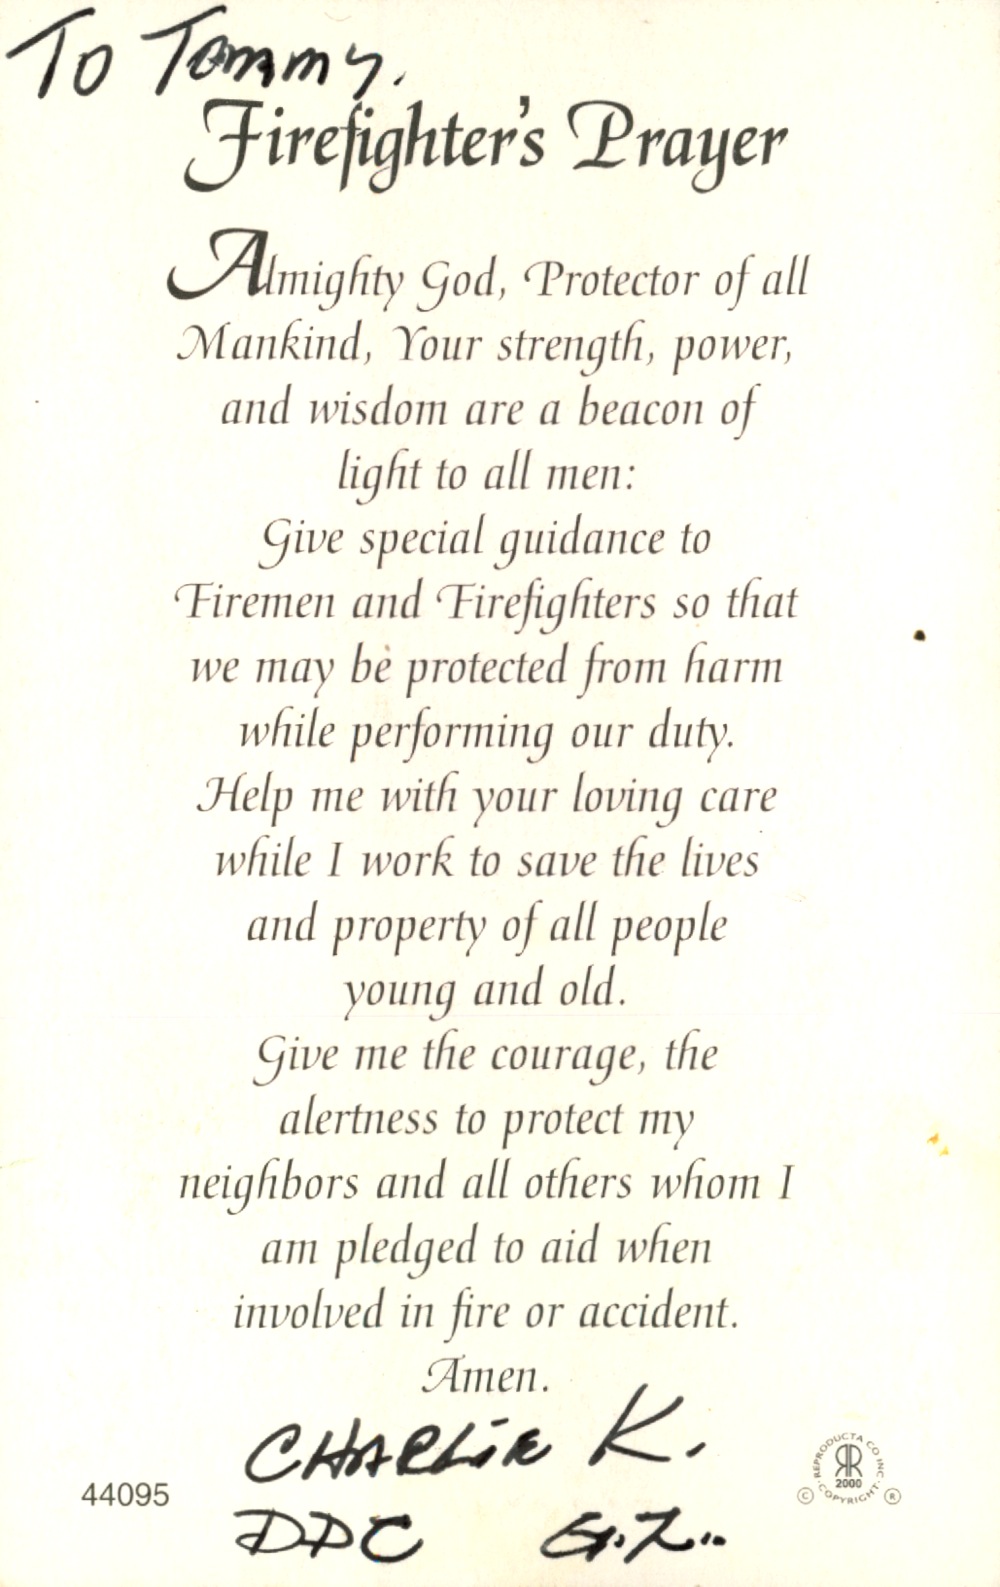 To Tommy.
Firefighter's Prayer
Almighty God, Protector of all
Mankind, Your strength, power,
and wisdom are a beacon of
light to all men:
Give special guidance to
Firemen and Firefighters so that
we may be protected from harm
while performing our duty.
Help me with your loving care
while I work to save the lives
and property of all people
young and old.
Give me the courage, the
alertness to protect my
neighbors and all others whom I
am pledged to aid when
involved in fire or accident.
Amen.
CHARLIE K.
44095
REPRODUCTA CO INC
RR
2000
© COPYRIGHT ®
DDC